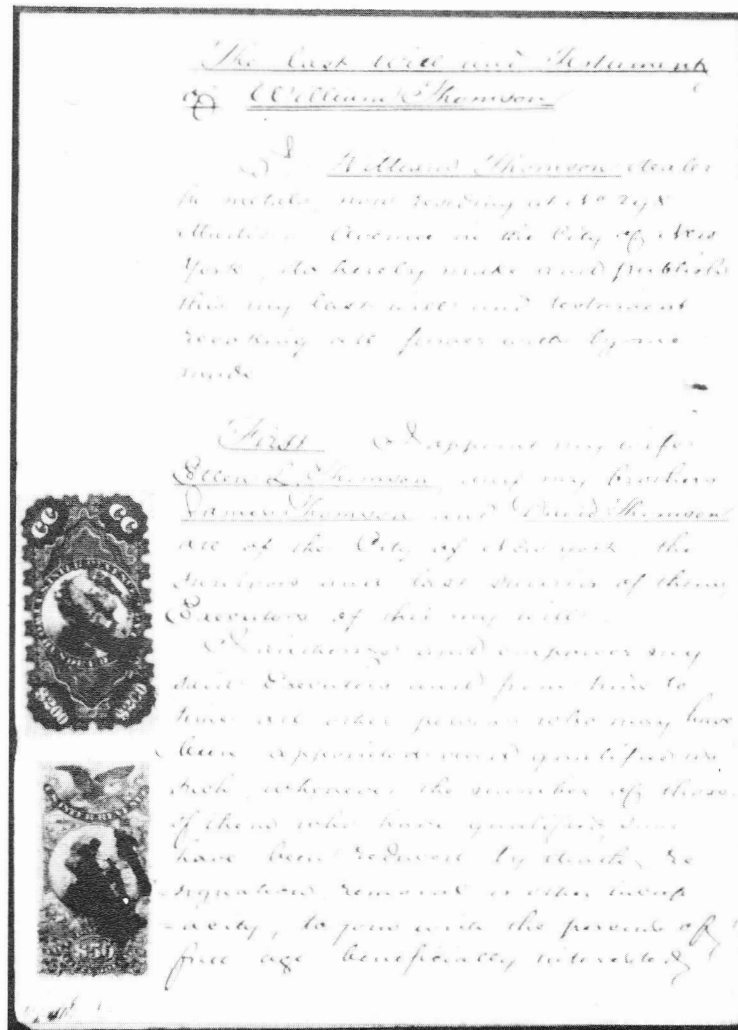 The last Will and Testament
of William Thomson
I William Thomson dealer
in metals, now residing at No 298
Madison Avenue in the City of New
York, do hereby make and publish
this my last will and testament
revoking all former wills by me
made
First I appoint my wife
Ellen L. Thomson and my brothers
James Thomson and David Thomson
all of the City of New York, the
survivors and last survivor of them,
Executors of this my will.
I authorize and empower my
said Executors and from time to
time all other persons who may have
been appointed and qualified as
such, whenever the number of those
of them who have qualified
have been reduced by death, re
signation, removal or other incap
acity, to join with the persons of
full age beneficially interested
CC CC
U.S. INTER. REV.
$200 $200
U.S. INTER. REV.
$50